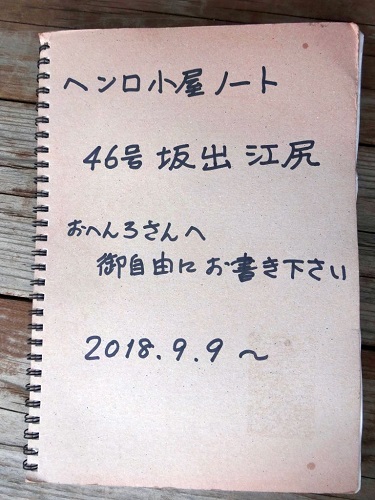 ヘンロ小屋ノート
46号 坂出 江尻
おへんろさんへ
御自由にお書き下さい
2018.9.9～